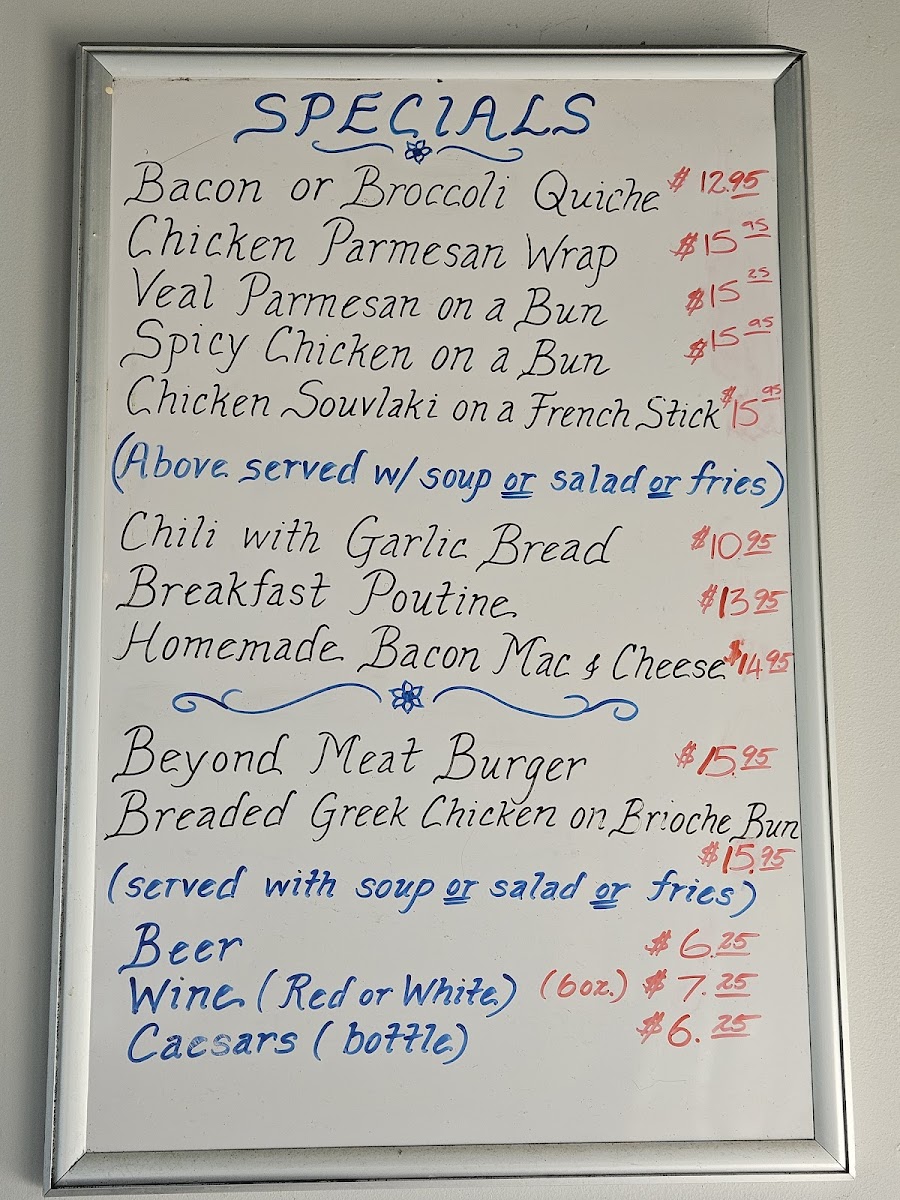 SPECIALS
Bacon or Broccoli Quiche $12.95
Chicken Parmesan Wrap $15 95
Veal Parmesan on a Bun $15 25
Spicy Chicken on a Bun $15 95
Chicken Souvlaki on a French Stick $15 95
(Above served w/ soup or salad or fries)
Chili with Garlic Bread $10.95
Breakfast Poutine $13 95
Homemade Bacon Mac & Cheese $14 95
Beyond Meat Burger $15.95
Breaded Greek Chicken on Brioche Bun
$15.95
(served with soup or salad or fries)
Beer $6.25
Wine (Red or White) (6oz.) $7.25
Caesars (bottle) $6.25